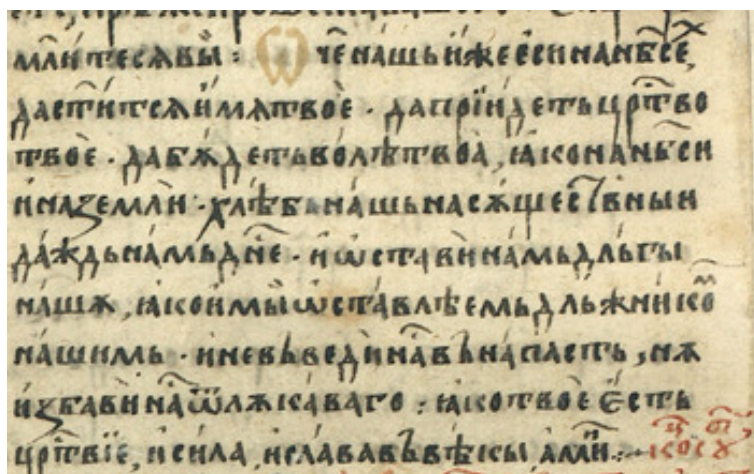 мл҃итесѧвы̀ : Ѿ ч҃енашьи́жееѝсинанб҃сеⷯ,
даст҃и́тсѧи́мѧтвоѐ · дапрїи́детьцр҃тво
твоѐ · дабѫ́детьво́лѣтвоа̀, ꙗ́конанб҃си
и҆наземлѝ · хлѣ́бьна́шьнасѫ́щестⷡ҇ны́и
да́ждьна́мьдн҃е · и҆ѡставѝна́мьдльгы
на́шѫ, ꙗ́коимы́ѡста́влѣемьдлъжникоⷨ
на́шимь · и҆невъведѝна́въна́пасть, нѫ
и҆ꙁбавѝна́ѿлѫка́ваго : ꙗ́котвоѐе́сть
цр҃твїе, и҆си́ла, и҆сла́вавъвѣ́кы а҆ми́н :~